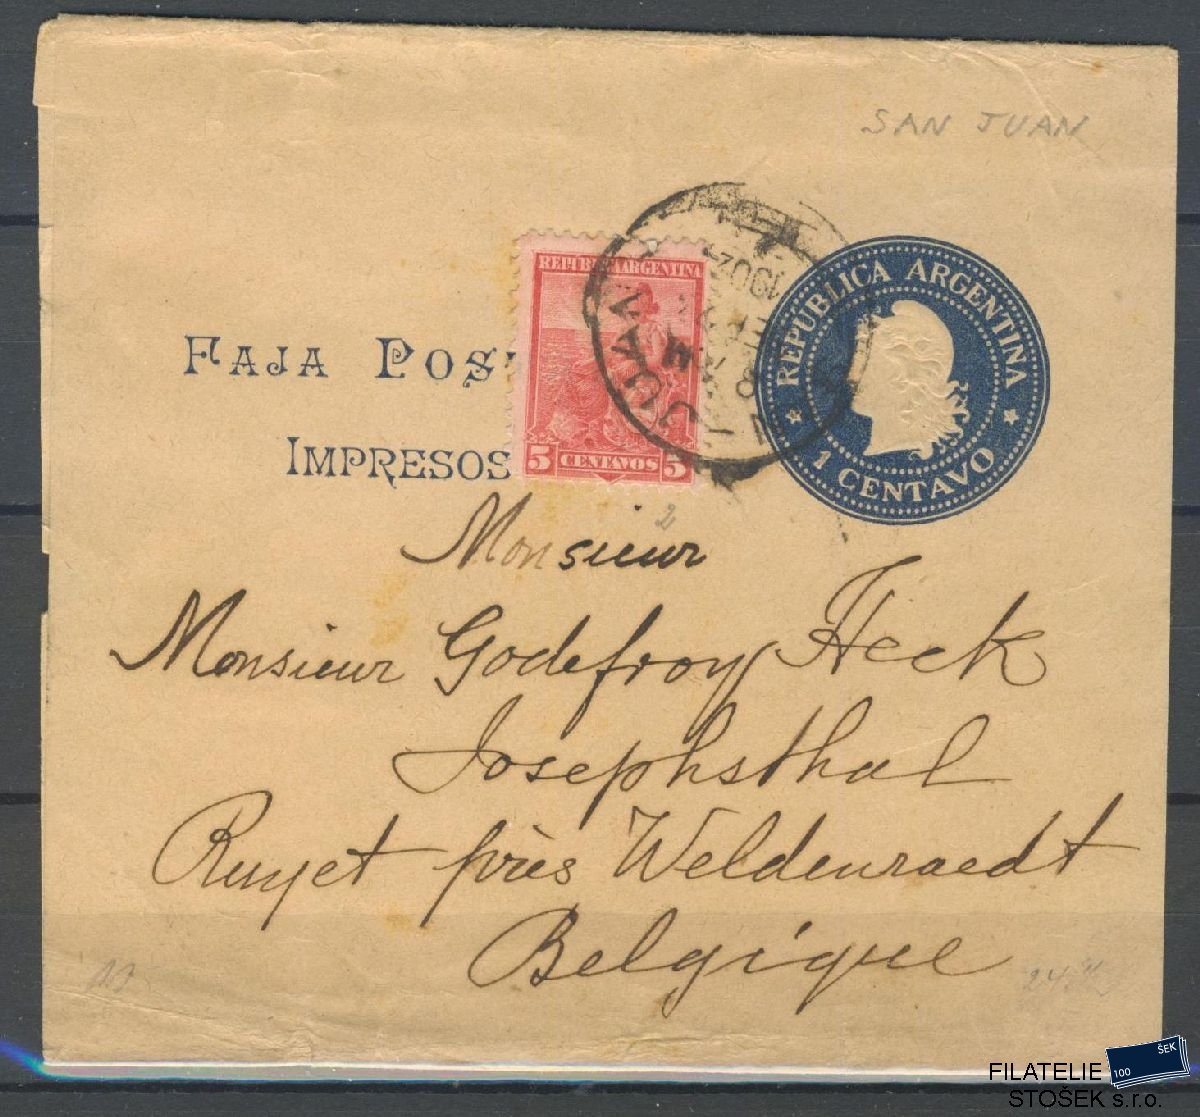 SAN JUAN
REPUBLICA ARGENTINA
1 CENTAVO
REPUBLICA ARGENTINA
5 CENTAVOS 5
JUAN
1902
FAJA POS
IMPRESOS
2
Monsieur
Monsieur Godefroy Heck
Josephsthal
Ruyet près Weldenraedt
Belgique
FILATELIE
STOŠEK s.r.o.
100 ŠEK